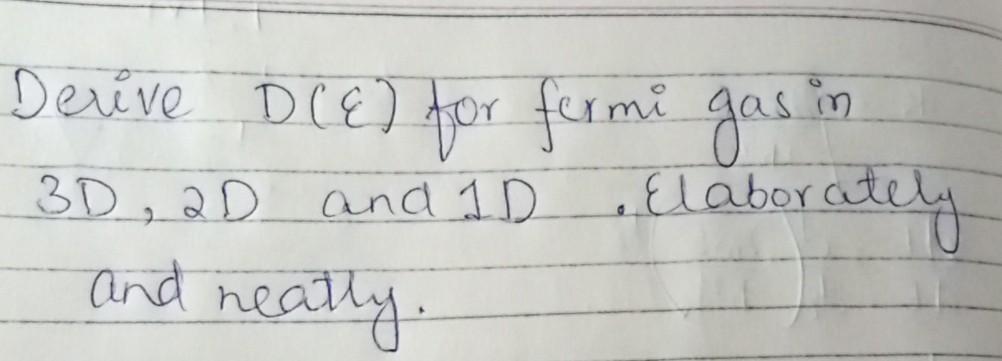 Derive D(ε) for fermi gas in
3D, 2D and 1D . Elaborately
and neatly.